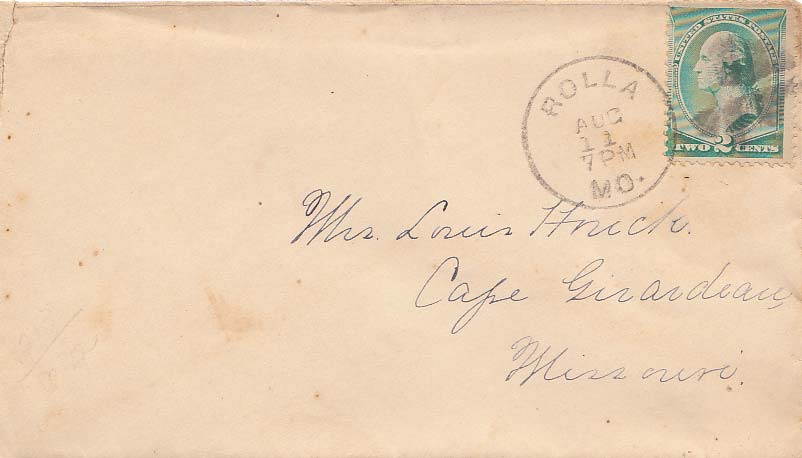 UNITED STATES POSTAGE
TWO 2 CENTS
ROLLA
AUG
11
7PM
MO.
Mrs. Louis Houck.
Cape Girardeau,
Missouri.